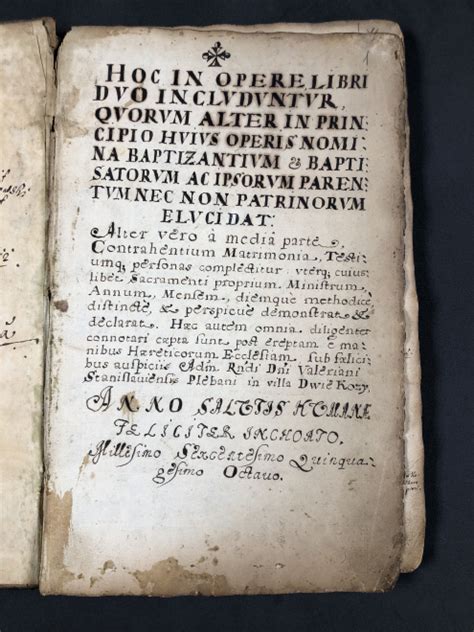 HOC IN OPERE LIBRI
DVO INCLVDVNTVR,
QVORVM ALTER IN PRIN:
CIPIO HVIVS OPERIS NOMI:
NA BAPTIZANTIVM & BAPTI:
SATORVM AC IPSORVM PAREN:
TVM NEC NON PATRINORVM
ELVCIDAT:
Alter vero à media parte,
Contrahentium Matrimonia, Testi:
umq, personas complectitur vterq, cuius:
libet Sacramenti proprium Ministrum,
Annum, Mensem, diemque methodice,
distincte, & perspicue demonstrat &
declarat. Hæc autem omnia diligenter
connotari cæpta sunt post ereptam e ma:
nibus Hæreticorum Ecclesiam sub fælici:
bus auspiciis Adm. Rndi Dni Valeriani
Stanislauiensis Plebani in villa Dwie Kozy,
ANNO SALVTIS HVMANÆ
FELICITER INCHOATO.
Millesimo Sexcentesimo Quinqua:
gesimo Octavo.